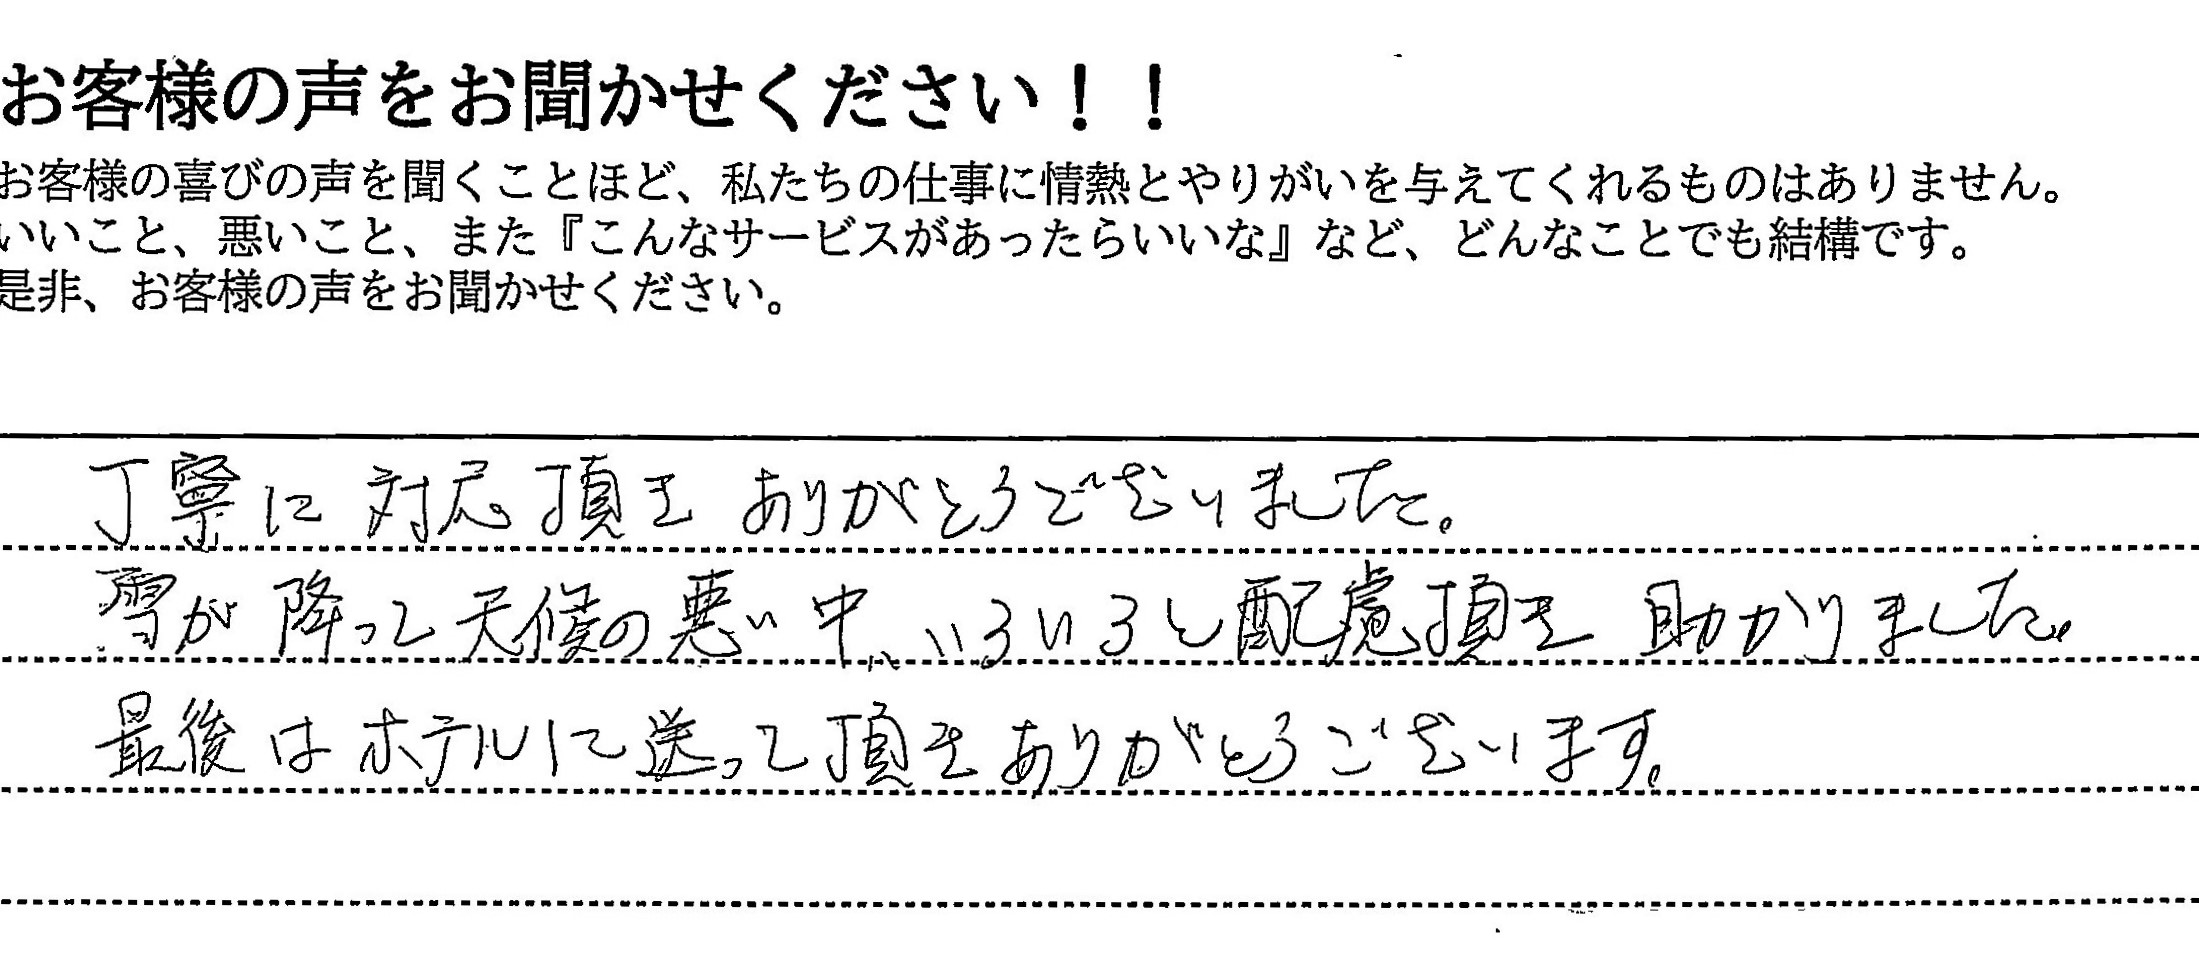 お客様の声をお聞かせください！！
お客様の喜びの声を聞くことほど、私たちの仕事に情熱とやりがいを与えてくれるものはありません。
いいこと、悪いこと、また『こんなサービスがあったらいいな』など、どんなことでも結構です。
是非、お客様の声をお聞かせください。
丁寧に対応頂きありがとうございました。
雪が降って天候の悪い中、いろいろと配慮頂き助かりました。
最後はホテルに送って頂きありがとうございます。